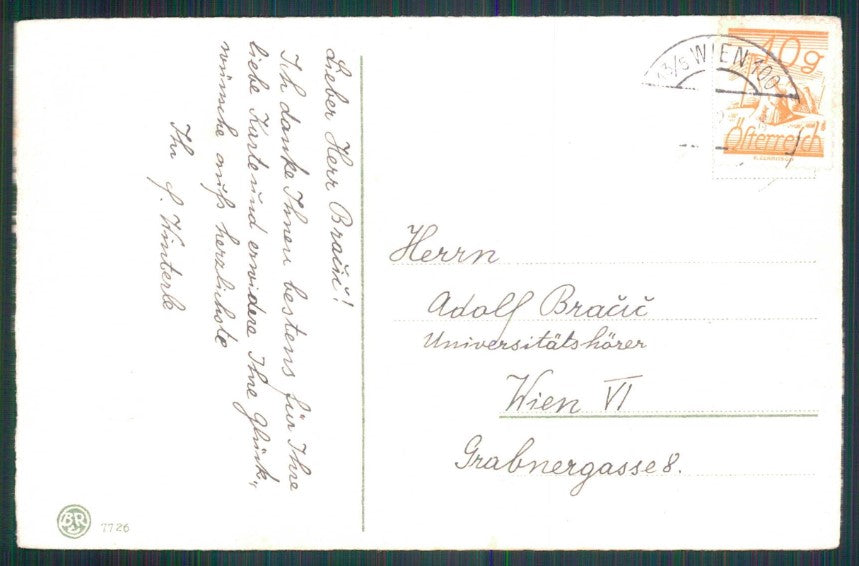 Lieber Herr Bračič!
Ich danke Ihnen bestens für Ihre
liebe Karte und erwidere Ihre Glück-
wünsche aufs herzlichste
Ihr J. Winterle
WIEN 100
10g
Österreich
Herrn
Adolf Bračič
Universitätshörer
Wien VI
Grabnergasse 8.
BR
7726